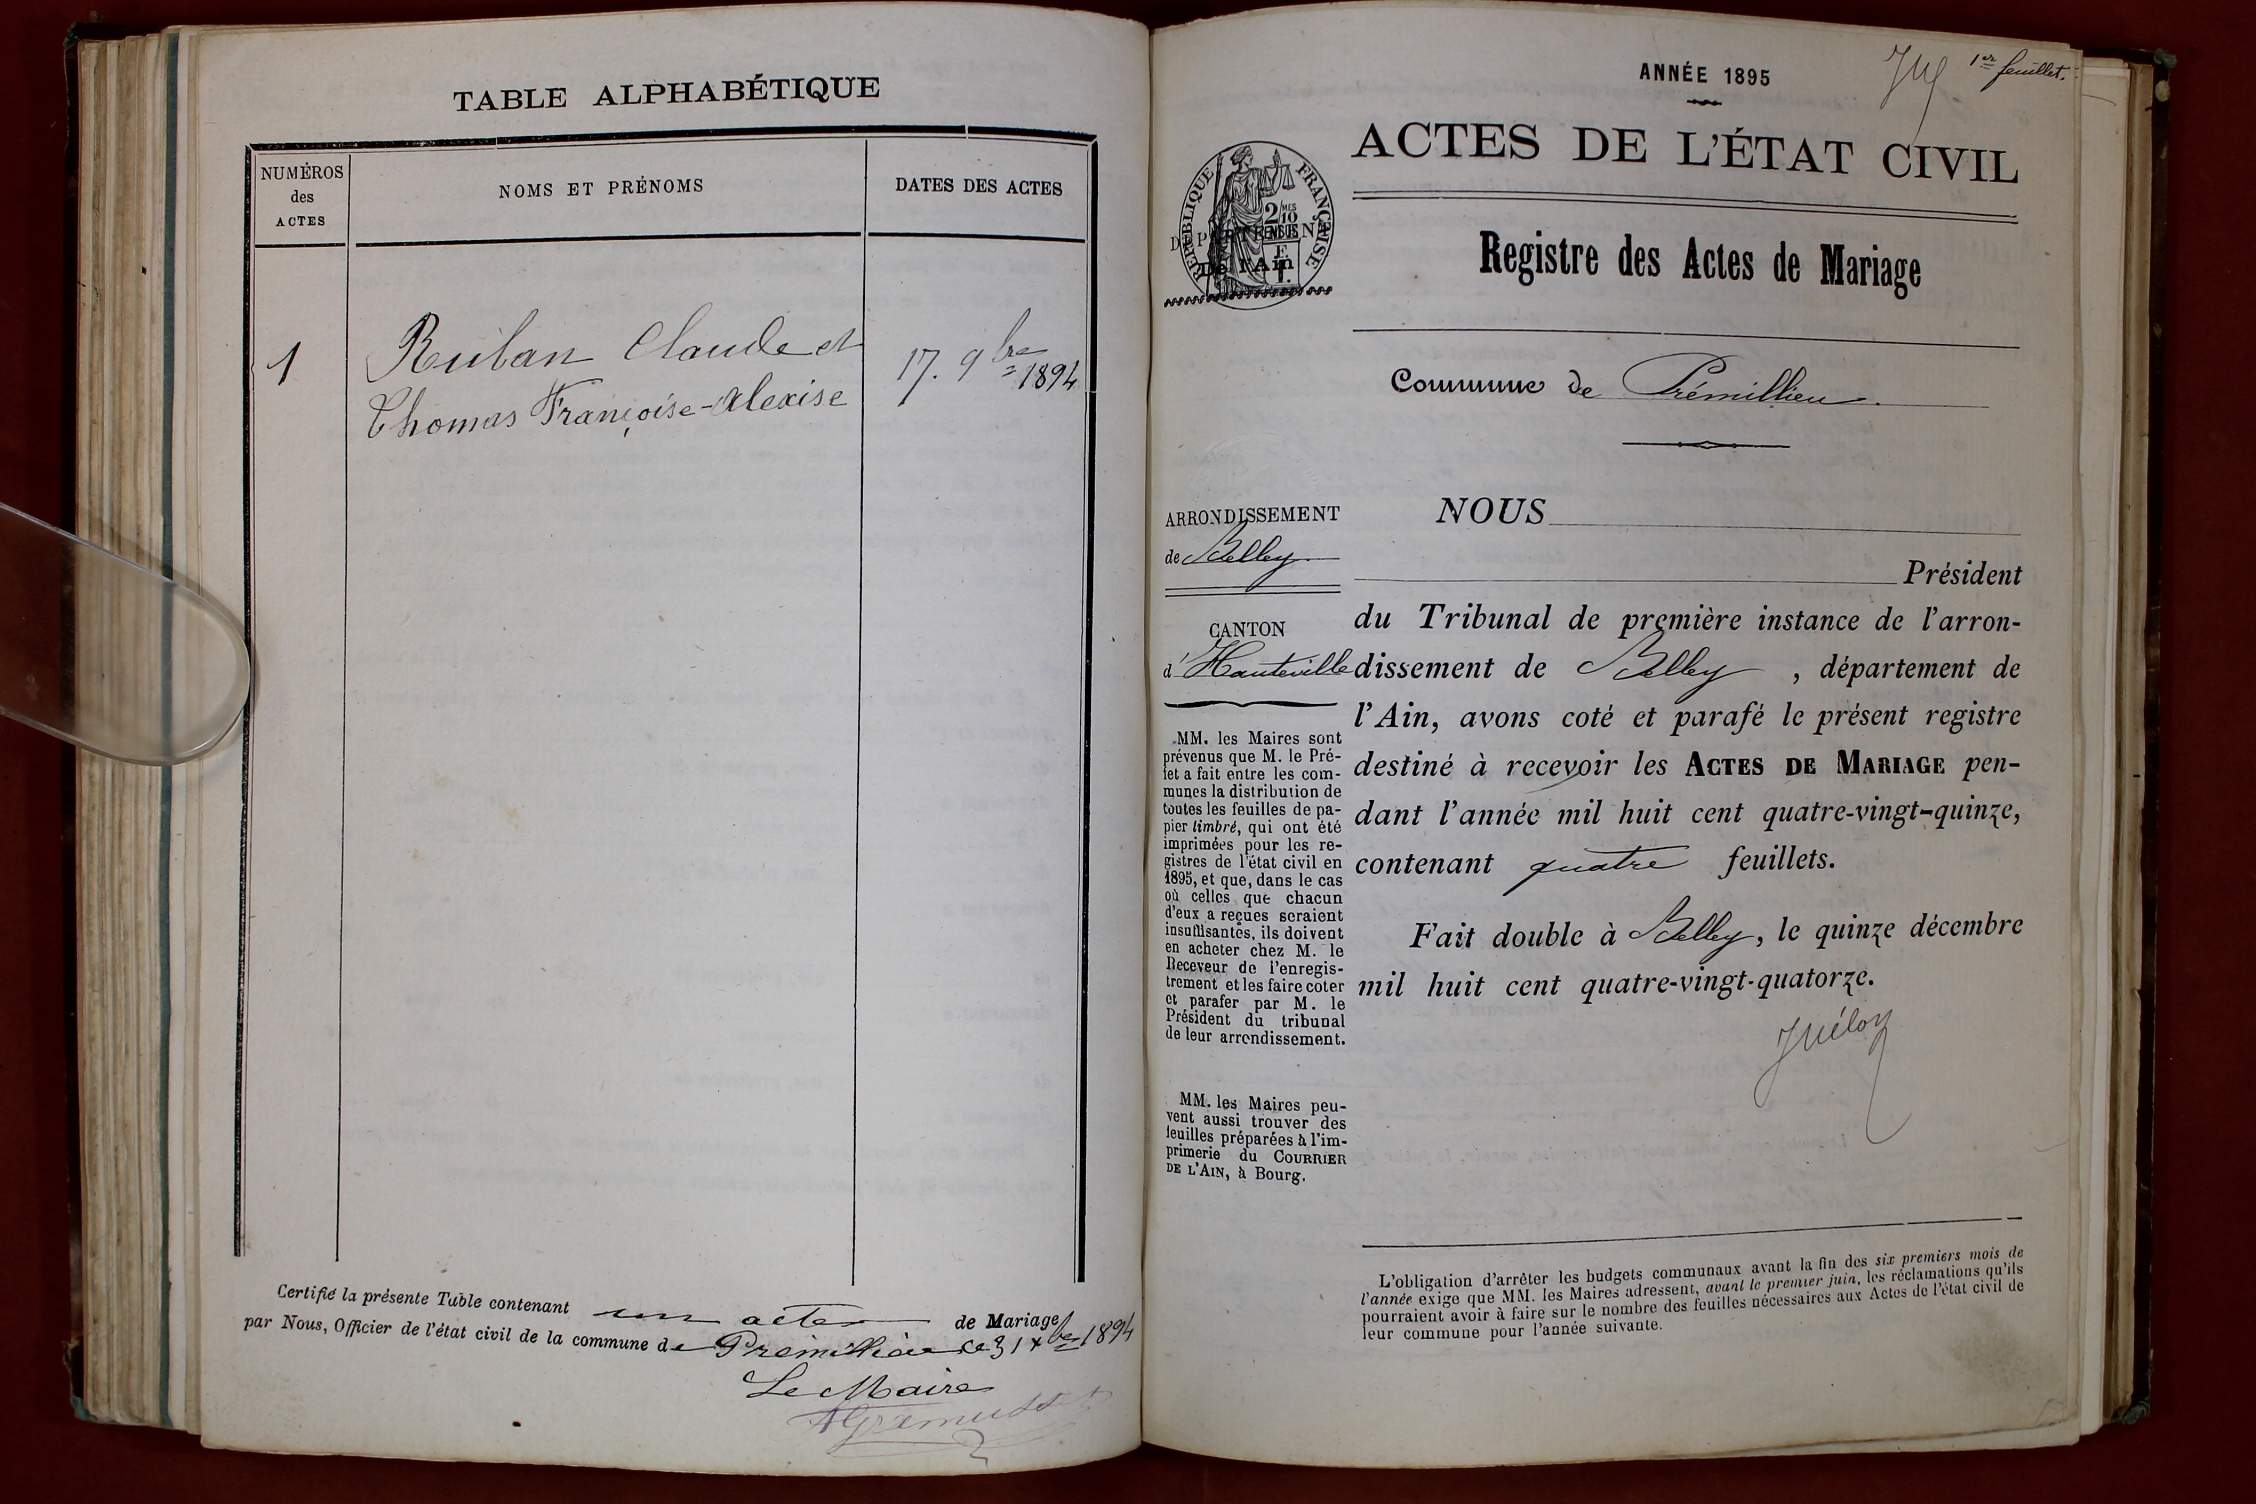 TABLE ALPHABÉTIQUE
NUMÉROS
des
ACTES
NOMS ET PRÉNOMS
DATES DES ACTES
1
Ruban Claude et
Thomas Françoise-Alexise
17. 9bre 1894
Certifié la présente Table contenant un acte de Mariage
par Nous, Officier de l'état civil de la commune de Prémillieu Ce 31 xbre 1894
Le Maire
1er feuillet.
ANNÉE 1895
ACTES DE L'ÉTAT CIVIL
RÉPUBLIQUE FRANÇAISE
2/10 MES
EN SUS
DÉPARTEMENT
De l'Ain
Registre des Actes de Mariage
Commune de Prémillieu.
ARRONDISSEMENT
de Belley
CANTON
d'Hauteville
MM. les Maires sont
prévenus que M. le Pré-
fet a fait entre les com-
munes la distribution de
toutes les feuilles de pa-
pier timbré, qui ont été
imprimées pour les re-
gistres de l'état civil en
1895, et que, dans le cas
où celles que chacun
d'eux a reçues seraient
insuffisantes, ils doivent
en acheter chez M. le
Receveur de l'enregis-
trement et les faire coter
et parafer par M. le
Président du tribunal
de leur arrondissement.
MM. les Maires peu-
vent aussi trouver des
feuilles préparées à l'im-
primerie du COURRIER
DE L'AIN, à Bourg.
NOUS
Président
du Tribunal de première instance de l'arron-
dissement de Belley, département de
l'Ain, avons coté et parafé le présent registre
destiné à recevoir les ACTES DE MARIAGE pen-
dant l'année mil huit cent quatre-vingt-quinze,
contenant quatre feuillets.
Fait double à Belley, le quinze décembre
mil huit cent quatre-vingt-quatorze.
L'obligation d'arrêter les budgets communaux avant la fin des six premiers mois de
l'année exige que MM. les Maires adressent, avant le premier juin, les réclamations qu'ils
pourraient avoir à faire sur le nombre des feuilles nécessaires aux Actes de l'état civil de
leur commune pour l'année suivante.